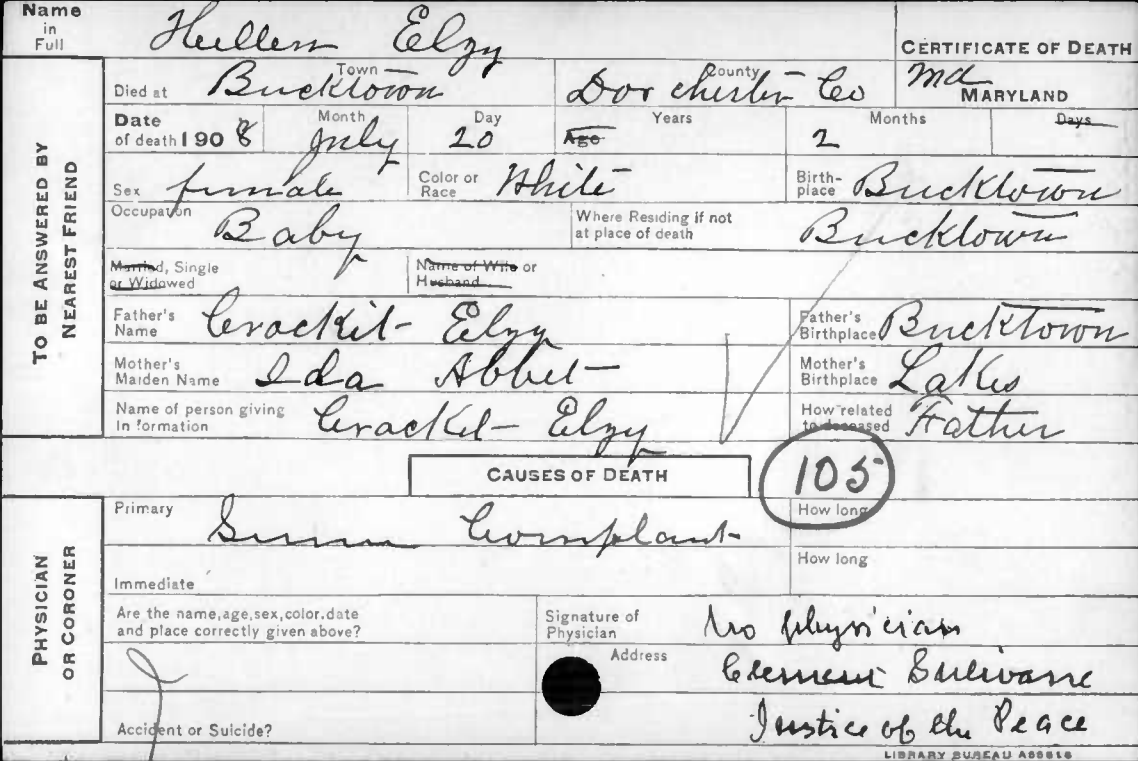 Name in Full Hellem Elzy
CERTIFICATE OF DEATH
TO BE ANSWERED BY NEAREST FRIEND
Died at Bucktown Town Dorchester Co County Md MARYLAND
Date of death 1908 Month July Day 20 Age Years Months 2 Days
Sex female Color or Race White Birthplace Bucktown
Occupation Baby Where Residing if not at place of death Bucktown
Married, Single or Widowed Name of Wife or Husband
Father's Name Crockit Elzy Father's Birthplace Bucktown
Mother's Maiden Name Ida Abbet Mother's Birthplace Lakes
Name of person giving Information Crocket Elzy How related to deceased Father
CAUSES OF DEATH 105
PHYSICIAN OR CORONER
Primary Complant How long
Immediate How long
Are the name, age, sex, color, date and place correctly given above? Signature of Physician No physician
Address Clement Sulivane
Accident or Suicide? Justice of the Peace
LIBRARY BUREAU